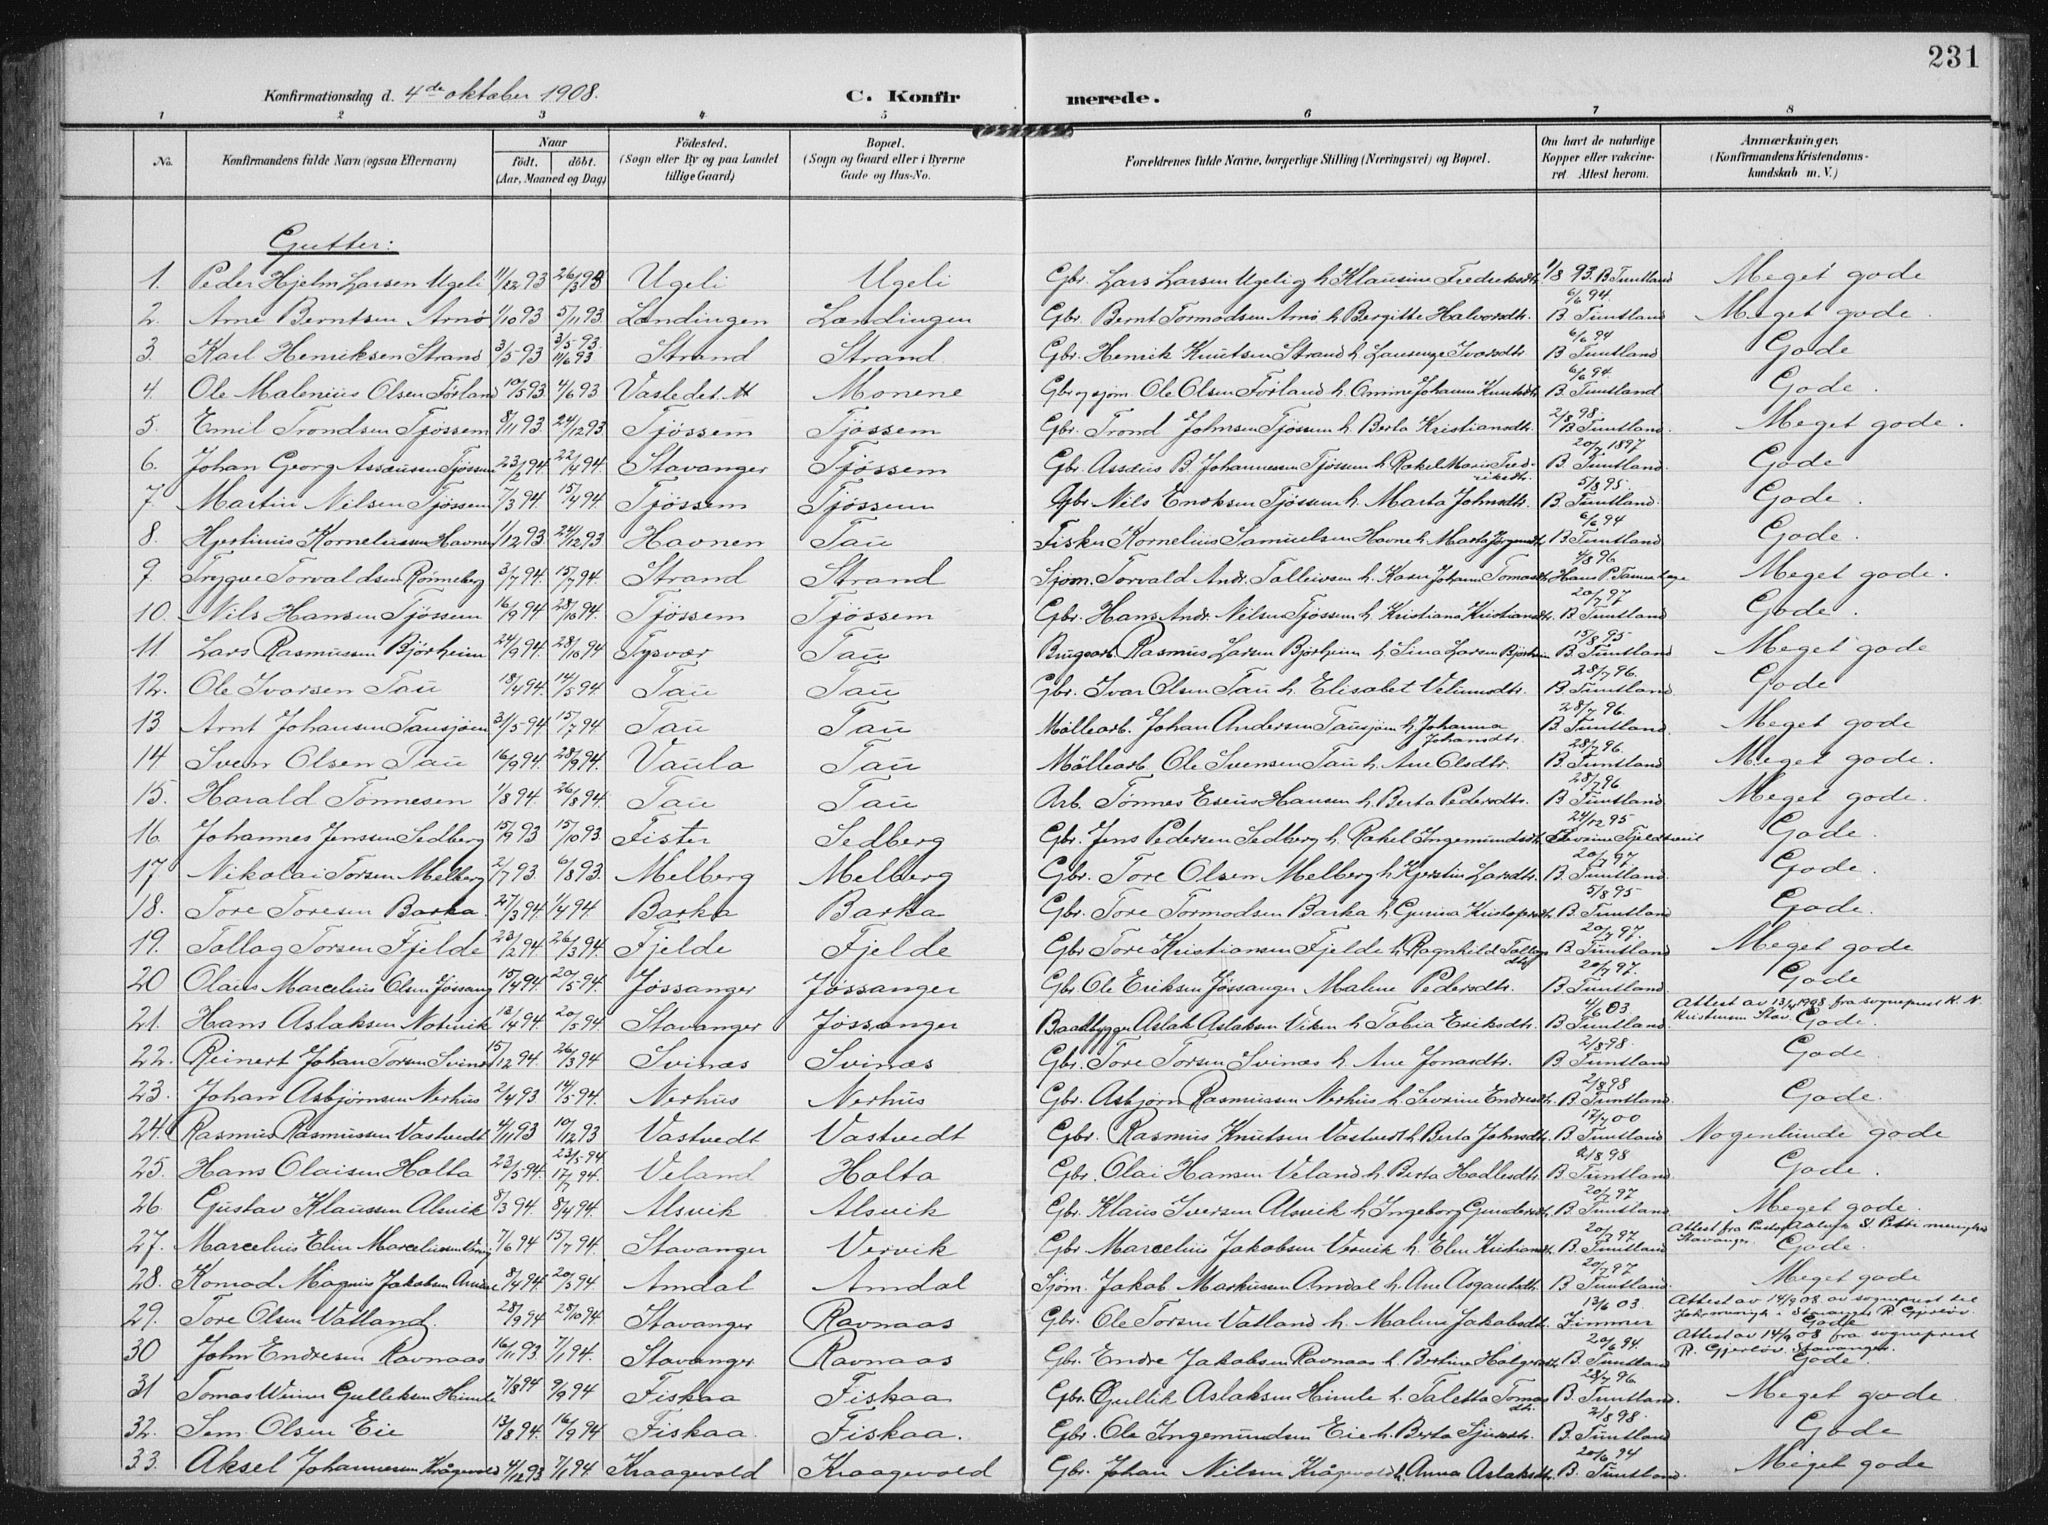 231
Konfirmationsdag d. 4de oktober 1908. C. Konfirmerede.
1 2 3 4 5 6 7 8
No. Konfirmandens fulde Navn (ogsaa Efternavn) Naar født. døbt. (Aar, Maaned og Dag) Fødested. (Sogn eller By og paa Landet tillige Gaard) Bopæl. (Sogn og Gaard eller i Byerne Gade og Hus-No. Forældrenes fulde Navne, borgerlige Stilling (Næringsvei) og Bopæl. Om havt de naturlige Kopper eller vakcineret. Attest herom. Anmærkninger. (Konfirmandens Kristendomskundskab m. V.)
Gutter:
1. Peder Hjelm Larsen Ugeli 11/12 93 26/3 93 Ugeli Ugeli Gbr. Lars Larsen Ugeli og h. Klausine Fredriksdtr. 1/8 93. B Tuntland Meget gode
2. Arne Berntsen Arnø 1/10 93 5/11 93 Lændingen Lændingen Gbr. Bernt Tormodsen Arnø h. Bergitte Halvorsdtr. 6/6 94. B. Tuntland Meget gode.
3. Karl Henriksen Strand 3/5 93 3/5 93. 11/6 93 Strand Strand. Gbr. Henrik Knutsen Strand h. Ivarsdtr 6/6 94 B Tuntland Gode
4. Ole Malenius Olsen Førland 10/5 93. 4/6 93 Vasledet Monene Gbr og sjøm. Ole Olsen Førland h. Omine Johanna Knutsdtr 6/6 94. B. Tuntland Gode.
5. Emil Trondsen Tjøssem 8/11 93. 24/12 93 Tjøssem Tjøssem Gbr. Trond Johnsen Tjøssem h. Berta Kristiansdtr. 2/8 98. B Tuntland. Meget gode.
6. Johan Georg Assæusen Tjøssem 23/2 94. 22/4 94. Stavanger Tjøssem Gbr. Assæus B. Johannessen Tjøssem h. Rakel Marie Fredriksdtr. 20/7 1897 B. Tuntland. Gode
7. Martin Nilsen Tjøssem 7/3 94. 15/4 94. Tjøssem Tjøssem Gbr Nils Eriksen Tjøssem h. Marta Johnsdtr. 5/8 95. B. Tuntland. Gode.
8. Hjertinius Korneliussen Havnen 1/12 93. 24/12 93 Havnen Tau Fisker Kornelius Samuelsen Havne h. Marta Jørgensdtr 6/6 94 B Tuntland Gode.
9. Trygve Torvaldsen Rønneberg 3/7 94. 15/7 94. Strand Strand Sjøm. Torvald Andr. Talleivsen h. Karen Johanna Tomasdtr 4/8 96 Hans P. Meget gode.
10. Nils Hansen Tjøssem 16/9 94 28/10 94. Tjøssem Tjøssem Gbr. Hans Andr. Nilsen Tjøssem h. Kristiana Kristiansdtr 20/7 97 B. Tuntland Gode.
11. Lars Rasmussen Bjørheim 24/9 94. 28/10 94 Tysvær Tau Brugsarb. Rasmus Larsen Bjørheim h. Sina Larsen Bjørheim 15/8 95 B. Tuntland Meget gode
12. Ole Ivarsen Tau 18/4 94. 14/5 94 Tau Tau Gbr. Ivar Olsen Tau h. Elisabet Velumsdtr. 28/7 96. B. Tuntland Gode.
13 Arnt Johansen Tausjøen 31/5 94 15/7 94 Tau Tau Møllearb. Johan Andersen Tausjøen h. Johanna Johansdtr. 28/7 96. B. Tuntland Meget gode
14 Sven Olsen Tau 16/9 94. 28/9 94. Vaula Tau Møllearb Ole Svensen Tau h. Ane Olsdtr. 28/7 96. B. Tuntland Meget gode.
15. Harald Tønnesen 1/8 94. 26/8 94. Tau Tau Arb. Tønnes Eseus Hansen h. Berta Pedersdtr. 28/7 96 B. Tuntland Meget gode.
16. Johannes Jenssen Sedberg 15/9 93 15/10 93. Fister Sedberg Gbr. Jens Pedersen Sedberg h. Rakel Ingemundsdtr 24/12 95 Gode.
17 Nikolai Torsen Melberg 2/7 93. 6/8 93. Melberg Melberg Gbr. Tore Olsen Melberg h. Kjerstin Larsdtr. 20/7 97 B. Tuntland. Gode.
18. Tore Toresen Barka. 27/3 94. 1/4 94. Barka Barka Gbr. Tore Tormodsen Barka h. Gurina Kristofersdtr 5/8 95 B. Tuntland Gode.
19. Tallag Torsen Fjelde 23/2 94 26/3 94. Fjelde Fjelde Gbr Tore Kristiansen Fjelde h. Ragnhild Tallagsdtr 20/7 97. B. Tuntland Meget gode
20 Olaus Marcelius Olsen Jøssang 15/4 94. 20/5 94. Jøssanger Jøssanger Gbr. Ole Eriksen Jøssanger Malene Pedersdtr. 20/7 97. B. Tuntland Gode
21. Hans Aslaksen Notvik 13/4 94 20/5 94. Stavanger Jøssanger Baadbygger Aslak Aslaksen Viken h. Tobia Eriksdtr. 4/6 03 B. Tuntland. Attest av 13/4 1908 fra sogneprest K. N. Kristensen Stav. Gode.
22. Reinert Johan Torsen Svinæs 15/12 94. 26/3 94 Svinæs Svinæs Gbr. Tore Torsen Svinæs h. Ane Jonasdtr. 2/8 98. B. Tuntland Gode
23. Johan Asbjørnsen Nerhus 2/4 93 14/5 94. Nerhus Nerhus Gbr. Asbjørn Rasmussen Nerhus h. Severine Endresdtr. 2/8 98 B Tuntland Gode.
24. Rasmus Rasmussen Vastvedt 4/11 93 10/12 93 Vastvedt Vastvedt Gbr. Rasmus Knutsen Vastvedt h. Berta Johnsdtr. 17/7 00 B. Tuntland Nogenlunde gode
25. Hans Olaisen Holta 23/5 94. 23/5 94 17/7 94. Veland Holta Gbr. Olai Hansen Veland h. Berta Hadlesdtr. 2/8 98 B. Tuntland Gode.
26. Gustav Klaussen Alsvik 8/3 94. 8/4 94. Alsvik Alsvik Gbr. Klaus Iversen Alsvik h. Ingeborg Gundersdtr 20/7 97 B. Tuntland. Meget gode.
27. Marcelius Elin Marceliussen 7/6 94 15/7 94. Stavanger Vervik Gbr Marcelius Jakobsen Vervik h. Elen Kristiansdtr. 20/7 97 B. Tuntland Attest fra St. Petri menighed Stavanger. Gode.
28. Konrad Magnus Jakobsen 8/4 94 20/5 94. Amdal Amdal Sjøm. Jakob Markussen Amdal h. Ane Asgautsdtr 20/7 97 B. Tuntland. Meget gode
29. Tore Olsen Vatland. 28/9 94 28/10 94. Stavanger Ravnaas Gbr. Ole Torsen Vatland h. Malene Jakobsdtr. 13/6 03. Zimmer Attest av 14/9 08 av sogneprest til i Stavanger R. Gjerløv. Gode
30 John Endresen Ravnaas 16/11 93 7/1 94. Stavanger Ravnaas Gbr. Endre Jakobsen Ravnaas h. Bertine 20/6 94. B. Tuntland Attest av 14/9 08 fra sogneprest R. Gjerløv. Stavanger. Gode.
31 Tomas Gulleksen Himle 7/8 94 9/9 94 Fiskaa Fiskaa Gbr. Gullik Aslaksen Himle h. Taletta Tomasdtr. 28/7 96 B. Tuntland Meget gode.
32. Sem Olsen Eie 13/8 94. 16/9 94 Fiskaa. Fiskaa. Gbr. Ole Ingemundsen Eie h. Berta 2/8 98. B. Tuntland Gode
33. Aksel Johannessen Krågevold 4/12 93 7/1 94. Kraagevold Kraagevold Gbr. Johan Nilsen Krågevold h. Anna Aslaksdtr. 20/6 94 B. Tuntland. Meget gode